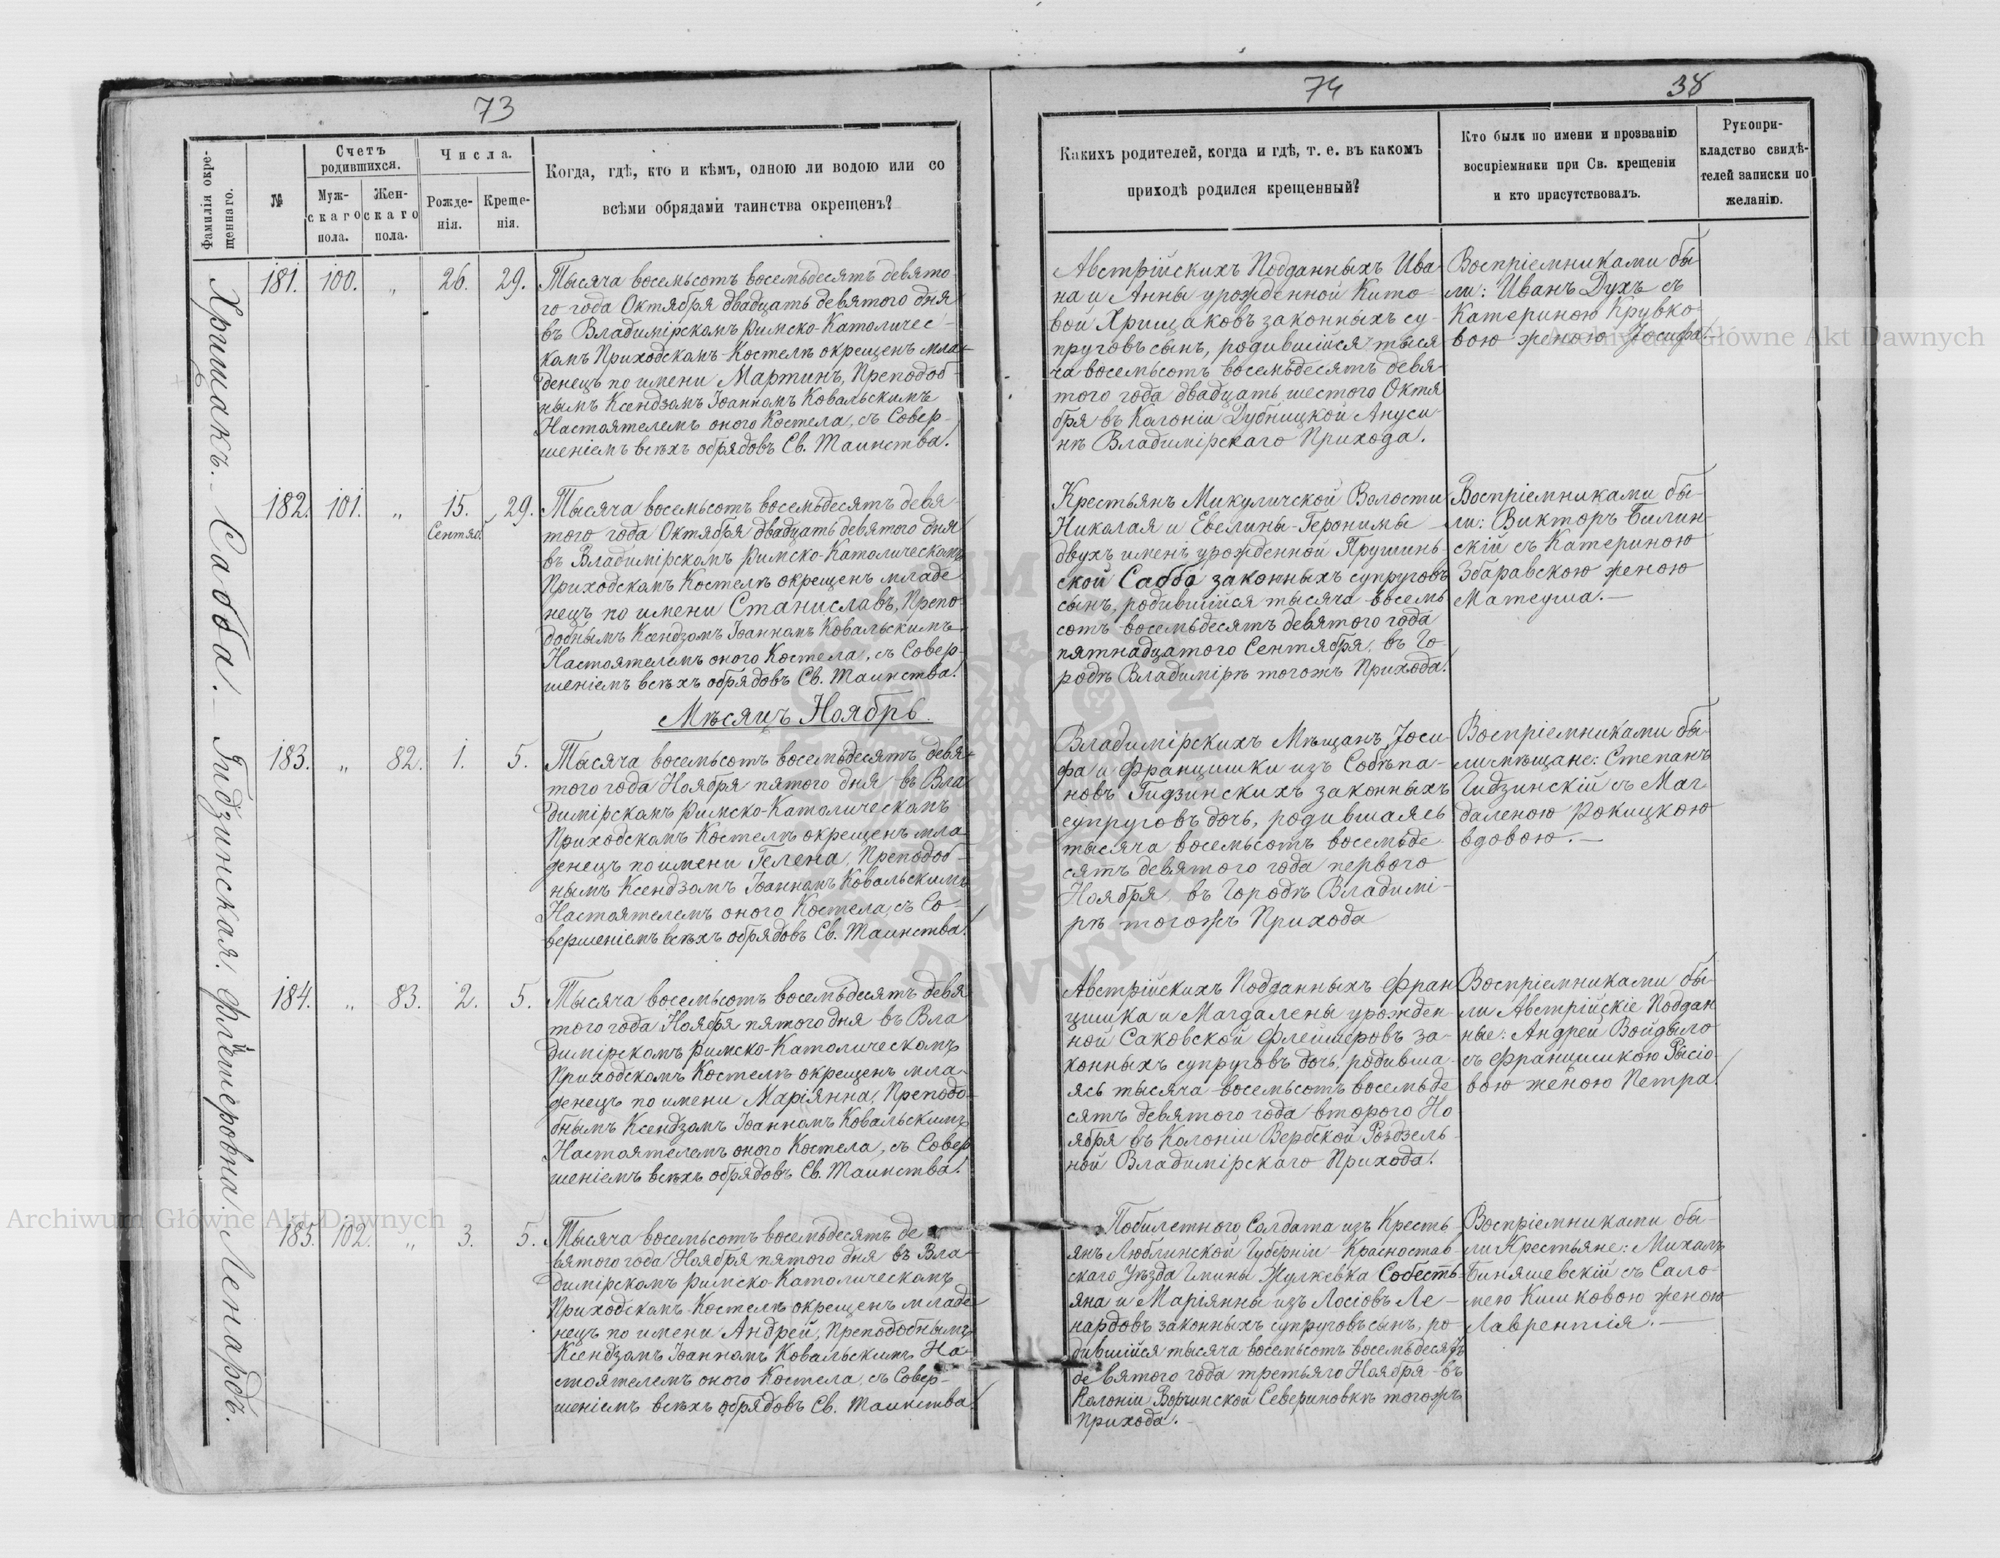 73
Фамилія окре-
щеннаго.
№
Счетъ
родившихся.
Муж-
скаго
пола.
Жен-
скаго
пола.
Числа.
Рожде-
нія.
Креще-
нія.
Когда, гдѣ, кто и кѣмъ, одною ли водою или со
всѣми обрядами таинства окрещенъ?
Хрищакъ.
181. 100. „ 26. 29.
Тысяча восемьсотъ восемьдесятъ девято-
го года Октября двадцать девятого дня
въ Владимірскомъ Римско-Католичес-
комъ Приходскомъ Костелѣ окрещенъ мла-
денецъ по имени Мартинъ, Преподоб-
нымъ Ксендзомъ Іоанномъ Ковальскимъ
Настоятелемъ оного Костела, съ Совер-
шеніемъ всѣхъ обрядовъ Св. Таинства.
Сабба.
182. 101. „ 15. 29.
Сентяб.
Тысяча восемьсотъ восемьдесятъ девя
того года Октября двадцать девятого дня
въ Владимірскомъ Римско-Католическомъ
Приходскомъ Костелѣ окрещенъ младе
нецъ по имени Станиславъ, Препо-
добнымъ Ксендзомъ Іоанномъ Ковальскимъ
Настоятелемъ оного Костела, съ Совер-
шеніемъ всѣхъ обрядовъ Св. Таинства.
Мѣсяцъ Ноябрь
Гидзинская.
183. „ 82. 1. 5.
Тысяча восемьсотъ восемьдесятъ девя-
того года Ноября пятого дня въ Вла
димірскомъ Римско-Католическомъ
Приходскомъ Костелѣ окрещенъ мла-
денецъ по имени Гелена, Преподоб-
нымъ Ксендзомъ Іоанномъ Ковальскимъ
Настоятелемъ оного Костела, съ Со-
вершеніемъ всѣхъ обрядовъ Св. Таинства.
184. „ 83. 2. 5.
Тысяча восемьсотъ восемьдесятъ девя
того года Ноября пятого дня въ Вла
димірскомъ Римско-Католическомъ
Приходскомъ Костелѣ окрещенъ мла-
денецъ по имени Маріянна, Преподо-
бнымъ Ксендзомъ Іоанномъ Ковальскимъ
Настоятелемъ оного Костела, съ Совер
шеніемъ всѣхъ обрядовъ Св. Таинства.
Ленардъ.
185. 102. „ 3. 5.
Тысяча восемьсотъ восемьдесятъ де
вятого года Ноября пятого дня въ Вла-
димірскомъ Римско-Католическомъ
Приходскомъ Костелѣ окрещенъ младе
нецъ по имени Андрей, Преподобнымъ
Ксендзомъ Іоанномъ Ковальскимъ На
стоятелемъ оного Костела, съ Совер-
шеніемъ всѣхъ обрядовъ Св. Таинства.
74
38
Какихъ родителей, когда и гдѣ, т. е. въ какомъ
приходѣ родился крещенный?
Кто были по имени и прозванію
воспріемники при Св. крещеніи
и кто присутствовалъ.
Рукопри-
кладство свидѣ-
телей записки по
желанію.
Австрійскихъ Подданныхъ Ива-
на и Анны урожденной Кито-
вой Хрищаковъ законныхъ су-
пруговъ сынъ, родившійся тыся
ча восемьсотъ восемьдесятъ девя-
того года двадцать шестого Октя
бря въ Колоніи Дубницкой Ануси-
нѣ Владимірскаго Прихода.
Воспріемниками бы-
ли: Иванъ Духъ съ
Катериною Крувко-
вою женою Іосифа.
Крестьянъ Микуличской Волости
Николая и Евелины-Геронимы
двухъ именъ урожденной Прушинь-
ской Сабба законныхъ супруговъ
сынъ, родившійся тысяча восемь
сотъ восемьдесятъ девятого года
пятнадцатого Сентября, въ Го-
родѣ Владимірѣ тогожъ Прихода.
Воспріемниками бы-
ли: Викторъ Билин-
скій съ Катериною
Збаравскою женою
Матеуша.
Владимірскихъ Мѣщанъ, Іоси-
фа и Францишки изъ Собѣпа-
новъ Гидзинскихъ законныхъ
супруговъ дочь, родившаясь
тысяча восемьсотъ восемьде
сятъ девятого года первого
Ноября, въ Городѣ Владимі-
рѣ тогожъ Прихода
Воспріемниками бы-
ли мѣщане: Степанъ
Гидзинскій съ Маг-
даленою Рокицкою
вдовою.
Австрійскихъ Подданныхъ Фран
цишка и Магдалены урожден
ной Саковской Флейшеровъ за-
конныхъ супруговъ дочь, родивша-
ясь тысяча восемьсотъ восемьде
сятъ девятого года второго Но
ября въ Колоніи Вербской Роздзель-
ной Владимірскаго Прихода.
Воспріемниками бы-
ли Австрійскіе Поддан
ные: Андрей Войдыло
съ Францишкою Рысіо-
вою женою Петра.
Побилетного Солдата изъ Кресть
янъ Люблинской Губерніи Красностав-
скаго Уѣзда Гмины Жулкевка Собесть-
яна и Маріянны изъ Лосіовъ Ле-
нардовъ законныхъ супруговъ сынъ, ро-
дившійся тысяча восемьсотъ восемьдесятъ
девятого года третьяго Ноября въ
Колоніи Севериновкѣ тогожъ
Прихода.
Воспріемниками бы-
ли Крестьяне: Михалъ
Биняшевскій съ Сало-
меею Кишковою женою
Лаврентія.
Archiwum Główne Akt Dawnych
Archiwum Główne Akt Dawnych